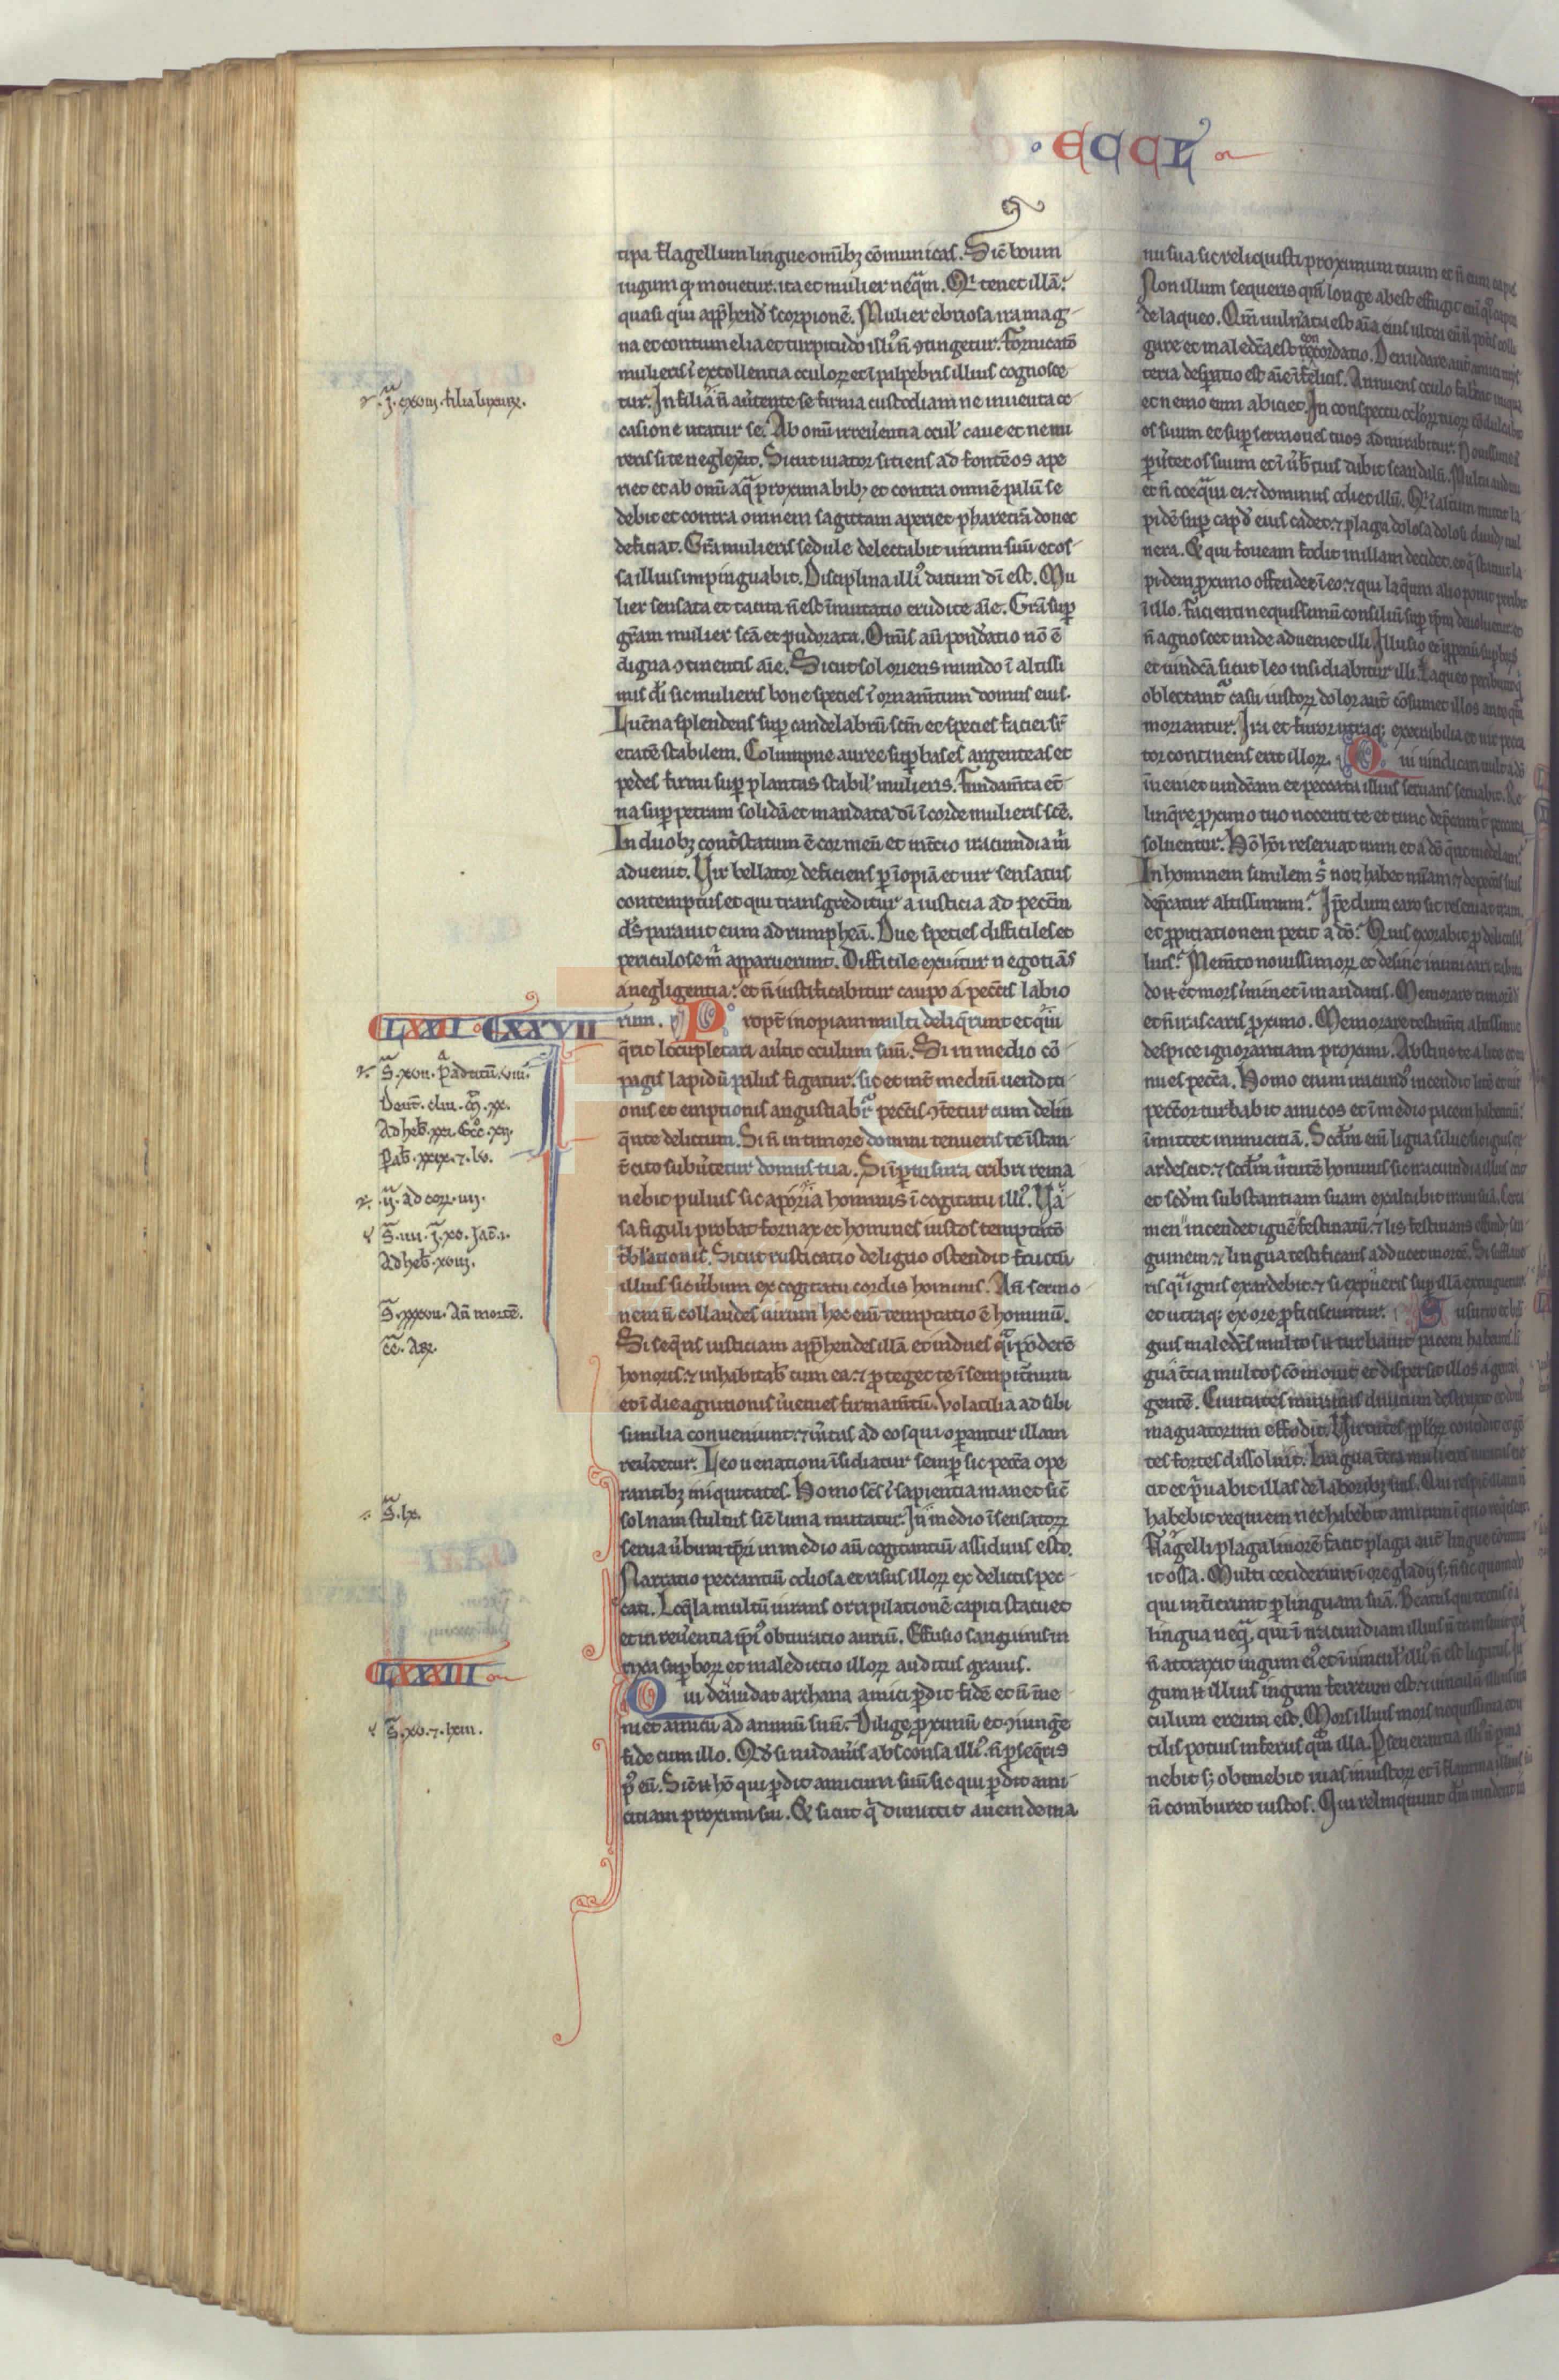 ECCL
tipa flagellum lingue om̅ib; co̅municas. Sic̅ boum
iugum q͛ mouetur. ita et mulier neq̅m. Q̅i tenet illa̅:
quasi qui app̅hend̅ scorpione̅. Mulier ebriosa ira mag-
na et contumelia et turpitudo illi᷒ n̅ ꝯtingetur. Fornicatō
mulieris i̅ extollentia oculoꝝ et i̅ palpebris illius cognosce
tur. In filia n̅ au̅tente se firma custodiam ne inuenta oc
casione utatur se. Ab om̅i irreu̅entia ocul̅ caue et ne mi
reris si te neglex̅it. Sicut uiator sitiens ad fonte̅ os ape
riet et ab om̅i aq̅ proxima bib; et contra omne̅ palu̅ se
debit et contra omnem sagittam aperiet pharetra̅ donec
deficiat. Gr̅a mulieris sedule delectabit uirum suu̅ et os-
sa illius impinguabit. Disciplina illi᷒ datum di̅ est. Mu
lier sensata et tacita n̅ est i̅mutatio erudite ai̅e. Gr̅a sup̅
gr̅am mulier sc̅a et pudorata. Omis au̅ pond̅atio no̅ e̅
digna ꝯtinentis ai̅e. Sicut sol oriens mundo i̅ altissi
mis di̅ sic mulieris bone species i̅ ornam̅tum domus eius.
Luc̅na splendens sup̅ candelabru̅ sc̅m et species faciei sr̅
etate̅ stabilem. Columpne auree sup̅ bases argenteas et
pedes firmi sup̅ plantas stabil̅ mulieris. Fundam̅ta et̅
na sup̅ petram solida̅ et mandata di̅ i̅ corde mulieris sc̅e.
In duob; cont̅statum e̅ cor meu̅ et in t̅cio iracundia m̅
aduenit. Uir bellator deficiens p̅ i̅opia̅ et uir sensatus
contemptus et qui transgreditur a iusticia ad pecc̅m
d̅s parauit eum ad rumphea̅. Due species difficiles et
periculose m̅ apparuerunt. Difficile exuitur negotia̅s
a negligentia: et n̅ iustificabitur caupo a pecc̅is labio
rum. Propt̅ inopiam multi deliq̅runt et q̅i
q̅rit locupletari au̅tit oculum suu̅. Si in medio co̅
pagis lapidu̅ palus figatur. sic et int̅ mediu̅ uenditi
onis et emptionis angustiabr̅ pecc̅is. ꝯtetur cum delin
q̅nte delictum. Si n̅ in timore domini tenueris te i̅stan-
t̅ cito subu̅tetur domus tua. Si i̅ p̅tusura cribri rema
nebit puluis sic aporia hominis i̅ cogitatu illi᷒. Ua-
sa figuli probat fornax et homines iustos temptatō
tb̅lationis. Sicut rusticatio de ligno ostendit fructu̅
illius sic u̅bum ex cogitatu cordis hominis. An̅ sermo
nem n̅ collaudes uirum hec eni̅ temptatio e̅ hominu̅.
Si seq̅ris iusticiam app̅hendes illa̅ et indues q̅i podere̅
honoris. ⁊ inhabitab̅ cum ea. ⁊ proteget te i̅ sempit̅num
et i̅ die agnitionis i̅uenies firmam̅tu̅. Uolatilia ad sibi
similia conueniunt. ⁊ u̅itas ad eos qui op̅antur illam
reu̅tetur. Leo uenationi i̅sidiatur semp̅ sic pecc̅a ope
rantib; iniquitates. Homo sc̅s i̅ sapientia manet sic̅
sol nam stultus sic̅ luna mutatur. In medio i̅sensatoꝝ
serua u̅bum tp̅ri in medio au̅ cogitantiu̅ assiduus esto.
Narratio peccantiu̅ odiosa et risus illoꝝ ex delictis pec-
cati. Loq̅la multu̅ iurans orripilatione̅ capiti statuet
et inreu̅entia ip̅i᷒ obturatio auriu̅. Effusio sanguinis in
rixa sup̅boꝝ et maledictio illoꝝ auditus grauis.
Qui denudat archana amici p̅dit fide̅ et n̅ i̅ue
niet amicu̅ ad animu̅ suu̅. Dilige p̅ximu̅ et ꝯiung̅e
fide cum illo. Qd̅ si nudau̅is absconsa illi᷒. n̅ p̅seq̅ris
p᷒ eu̅. Sic̅ n̅ ho̅ qui p̅dit amicum suu̅ sic qui p̅dit ami
citiam proximi sui. Et sicut q̅ dimittit auem de ma
LXXII CXXVII
LXXXIII
nu sua sic reliquisti proximum tuum et n̅ eum capies
Non illum sequeris qm̅ longe abest effugit eni̅ q᷒i caprea
de laqueo. Qm̅ uuln̅ata est ai̅a eius ultra eu̅ n̅ pot̅is colli
gare et maledc̅i est concordatio. Denudare au̅t amici mis̅
teria desp̅atio est ai̅e i̅felicis. Annuens oculo fabricat iniqua
et nemo eum abiciet. In conspectu oc̅loꝝ tuoꝝ co̅dulcabit
os suum et sup̅ sermones tuos admirabitur. Nouissime
p̅u̅tet os suum et i̅ u̅b̅ tuis dabit scandalu̅. Multa audiui
et n̅ coeq̅ui ei. ⁊ dominus odiet illu̅. Q̅i i̅ altum mittit la
pide̅ sup̅ cap᷒ eius cadet. ⁊ plaga dolosa dolosi diuid; uul
nera. Et qui foueam fodit in illam decidet. et q̅ statuit la
pidem p̅ximo offendet i̅ eo. ⁊ qui laq̅um alio ponit peribit
i̅ illo. Facienti nequissimu̅ consiliu̅ sup̅ ip̅m deuoluetur et
n̅ agnoscet unde adueniet illi. Illusio et i̅p̅periu̅ sup̅bis
et uindc̅a sicut leo insidiabitur illi. Laqueo peribunt q̅
oblectant᷒ casu iustoꝝ dolor aut̅ co̅sumet illos anteq̅m
moriantur. Ira et furor utraq; execrabilia et uir pecca
tor continens erit illoꝝ. Qui uindicari uult a do̅
i̅ueniet uindc̅am et peccata illius seruans seruabit. Re
linq̅re p̅ximo tuo nocenti te et tunc dep̅canti t̅ peccata
soluentur. Ho̅ ho̅i reseruat iram et a do̅ q̅rit medelam.
In hominem similem s̅ non habet mi̅am. ⁊ de pecc̅is suis
dep̅catur altissimum. Ip̅e dum caro sit reseruat iram.
et p̅pitiationem petit a do̅. Quis exorabit p̅ delictis il
lius. Mem̅to nouissimoꝝ et desine inimicari tabitu
do n̅ et mors i̅minet i̅ mandatis. Memorare timore̅ di̅
et n̅ irascaris p̅ximo. Memorare testam̅ti altissimi et
despice ignorantiam proximi. Abstine te a lite et mi
nues pecc̅a. Homo enim iracund᷒ incendit lite̅ et uir
pecc̅or turbabit amicos et i̅ medio pacem habentiu̅
i̅mittet inimicitia̅. Scd̅m eni̅ ligna silue sic ignis ex
ardescit. ⁊ scd̅m u̅tute̅ hominis sic iracundia illius erit
et scd̅m substantiam suam exaltabit iram sua̅. Certa
men incendet igne̅ festinatu̅. ⁊ lis festinans effund; san
guinem. ⁊ lingua testificans adducet morte̅. Si sufflaue
ris q̅i ignis exardebit. ⁊ si expueris sup̅ illa̅ extinguetur
et utraq; ex ore p̅ficiscuntur. Susurro et bi̅
guis maledc̅s multos n̅ turbauit pacem habentes. li
gua t̅cia multos co̅mouit et dispersit illos a gente i̅
gente̅. Ciuitates muratas diuitum destruxit et dom᷒
magnatorum effodit. Uirtutes pp̅loꝝ concidit et ge̅
tes fortes dissoluit. Lingua t̅cia mulieres uiratas eie
cit et p̅uabit illas de laborib; suis. Qui respic̅ illam n̅
habebit requiem nec habebit amicum i̅ quo req̅escat.
Flagelli plaga liuore̅ facit plaga aut̅ lingue co̅minu
it ossa. Multi ceciderunt i̅ ore gladij s; n̅ sic quomodo
qui int̅ierunt p̅ linguam sua̅. Beatus qui tectus e̅ a
lingua neq̅, qui i̅ iracundiam illius n̅ transiuit et q̅
n̅ attraxit iugum ei᷒ et i̅ uincul̅ illi᷒ n̅ est ligatus. Iu
gum n̅ illius iugum ferreum est. ⁊ uinculu̅ illius uin
culum ereum est. Mors illius mors nequissima et u
tilis potius inferus q̅m illa. P̅seuerantia illi᷒ n̅ p̅ma
nebit s; obtinebit uias iniustoꝝ et i̅ flamma illius
n̅ comburet iustos. Qui relinquunt d̅m incident in